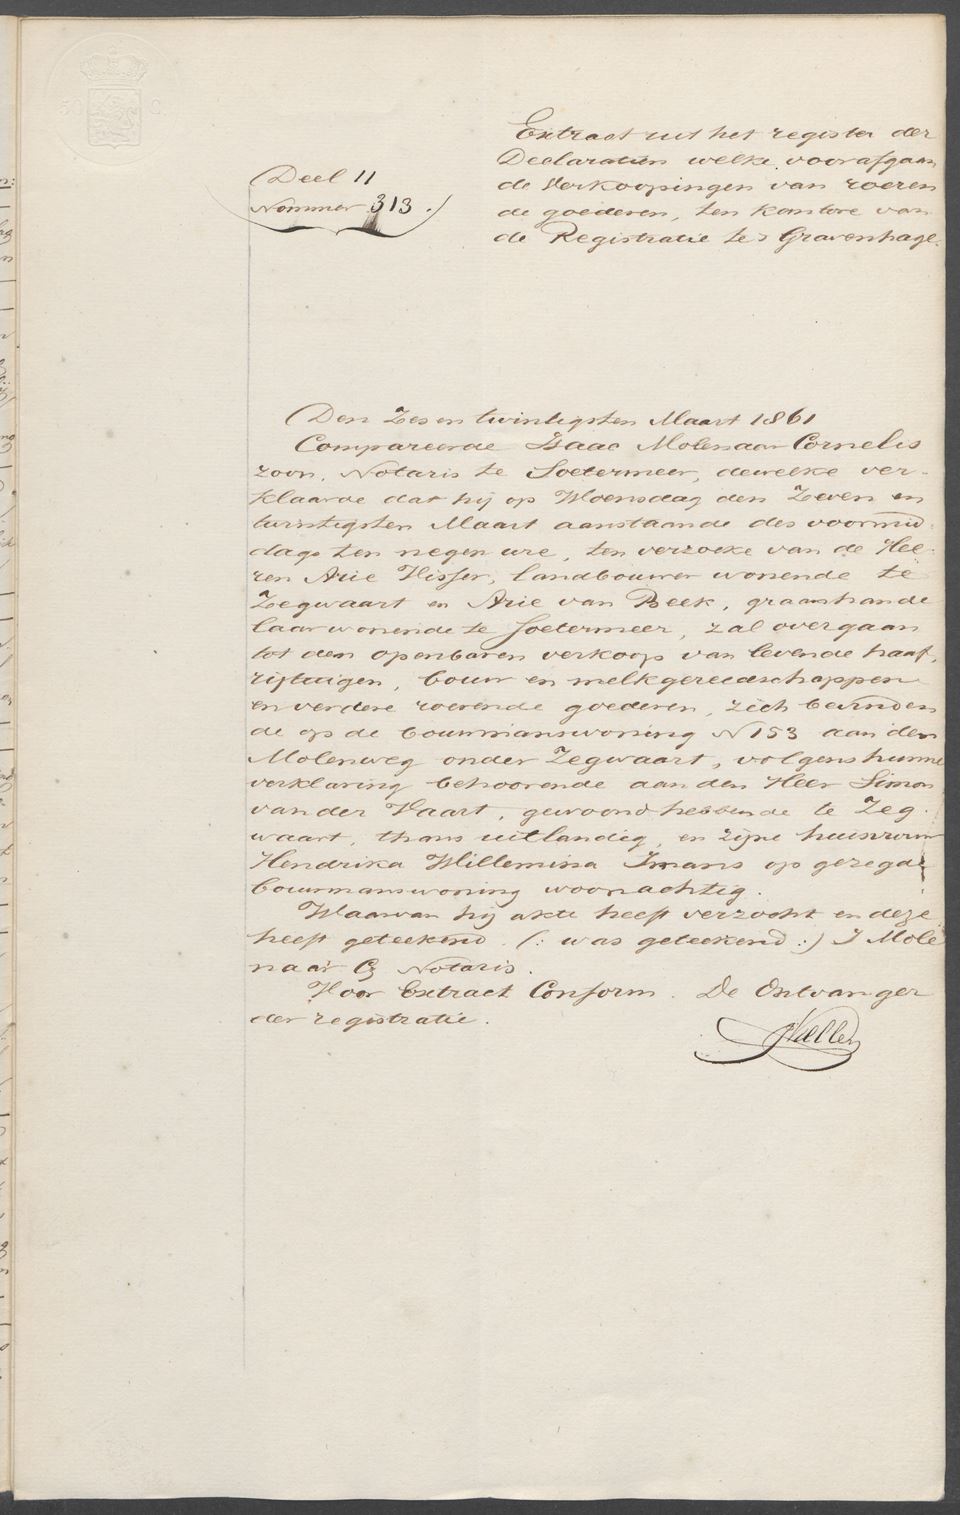 50 C
Extract uit het register der
Declaratien welke voorafgaan
de Verkoopingen van roeren
de goederen, ten kantore van
de Registratie te 's Gravenhage.
Deel 11
Nommer 313.
Den Zes en twintigsten Maart 1861
Compareerde Isaac Molenaar Cornelis
zoon, Notaris te Soetermeer, dewelke ver-
klaarde dat hij op Woensdag den Zeven en
twintigsten Maart aanstaande des voormid-
dags ten negen ure, ten verzoeke van de Hee-
ren Arie Visser, landbouwer wonende te
Zegwaart en Arie van Beek, graanhande
laar wonende te Soetermeer, zal overgaan
tot den openbaren verkoop van levende haaf,
rijtuigen, bouw en melkgereedschappen
en verdere roerende goederen, zich bevinden
de op de bouwmanswoning N 153 aan den
Molenweg onder Zegwaart, volgens hunne
verklaring behoorende aan den Heer Simon
van der Vaart, gewoond hebbende te Zeg-
waart, thans uitlandig, en zijne huisvrouw
Hendrika Willemina Imans op gezegde
bouwmanswoning woonachtig.
Waarvan hij akte heeft verzocht en deze
heeft geteekend. (: was geteekend :) I Mole
naar Cz Notaris.
Voor Extract Conform. De Ontvanger
der registratie.